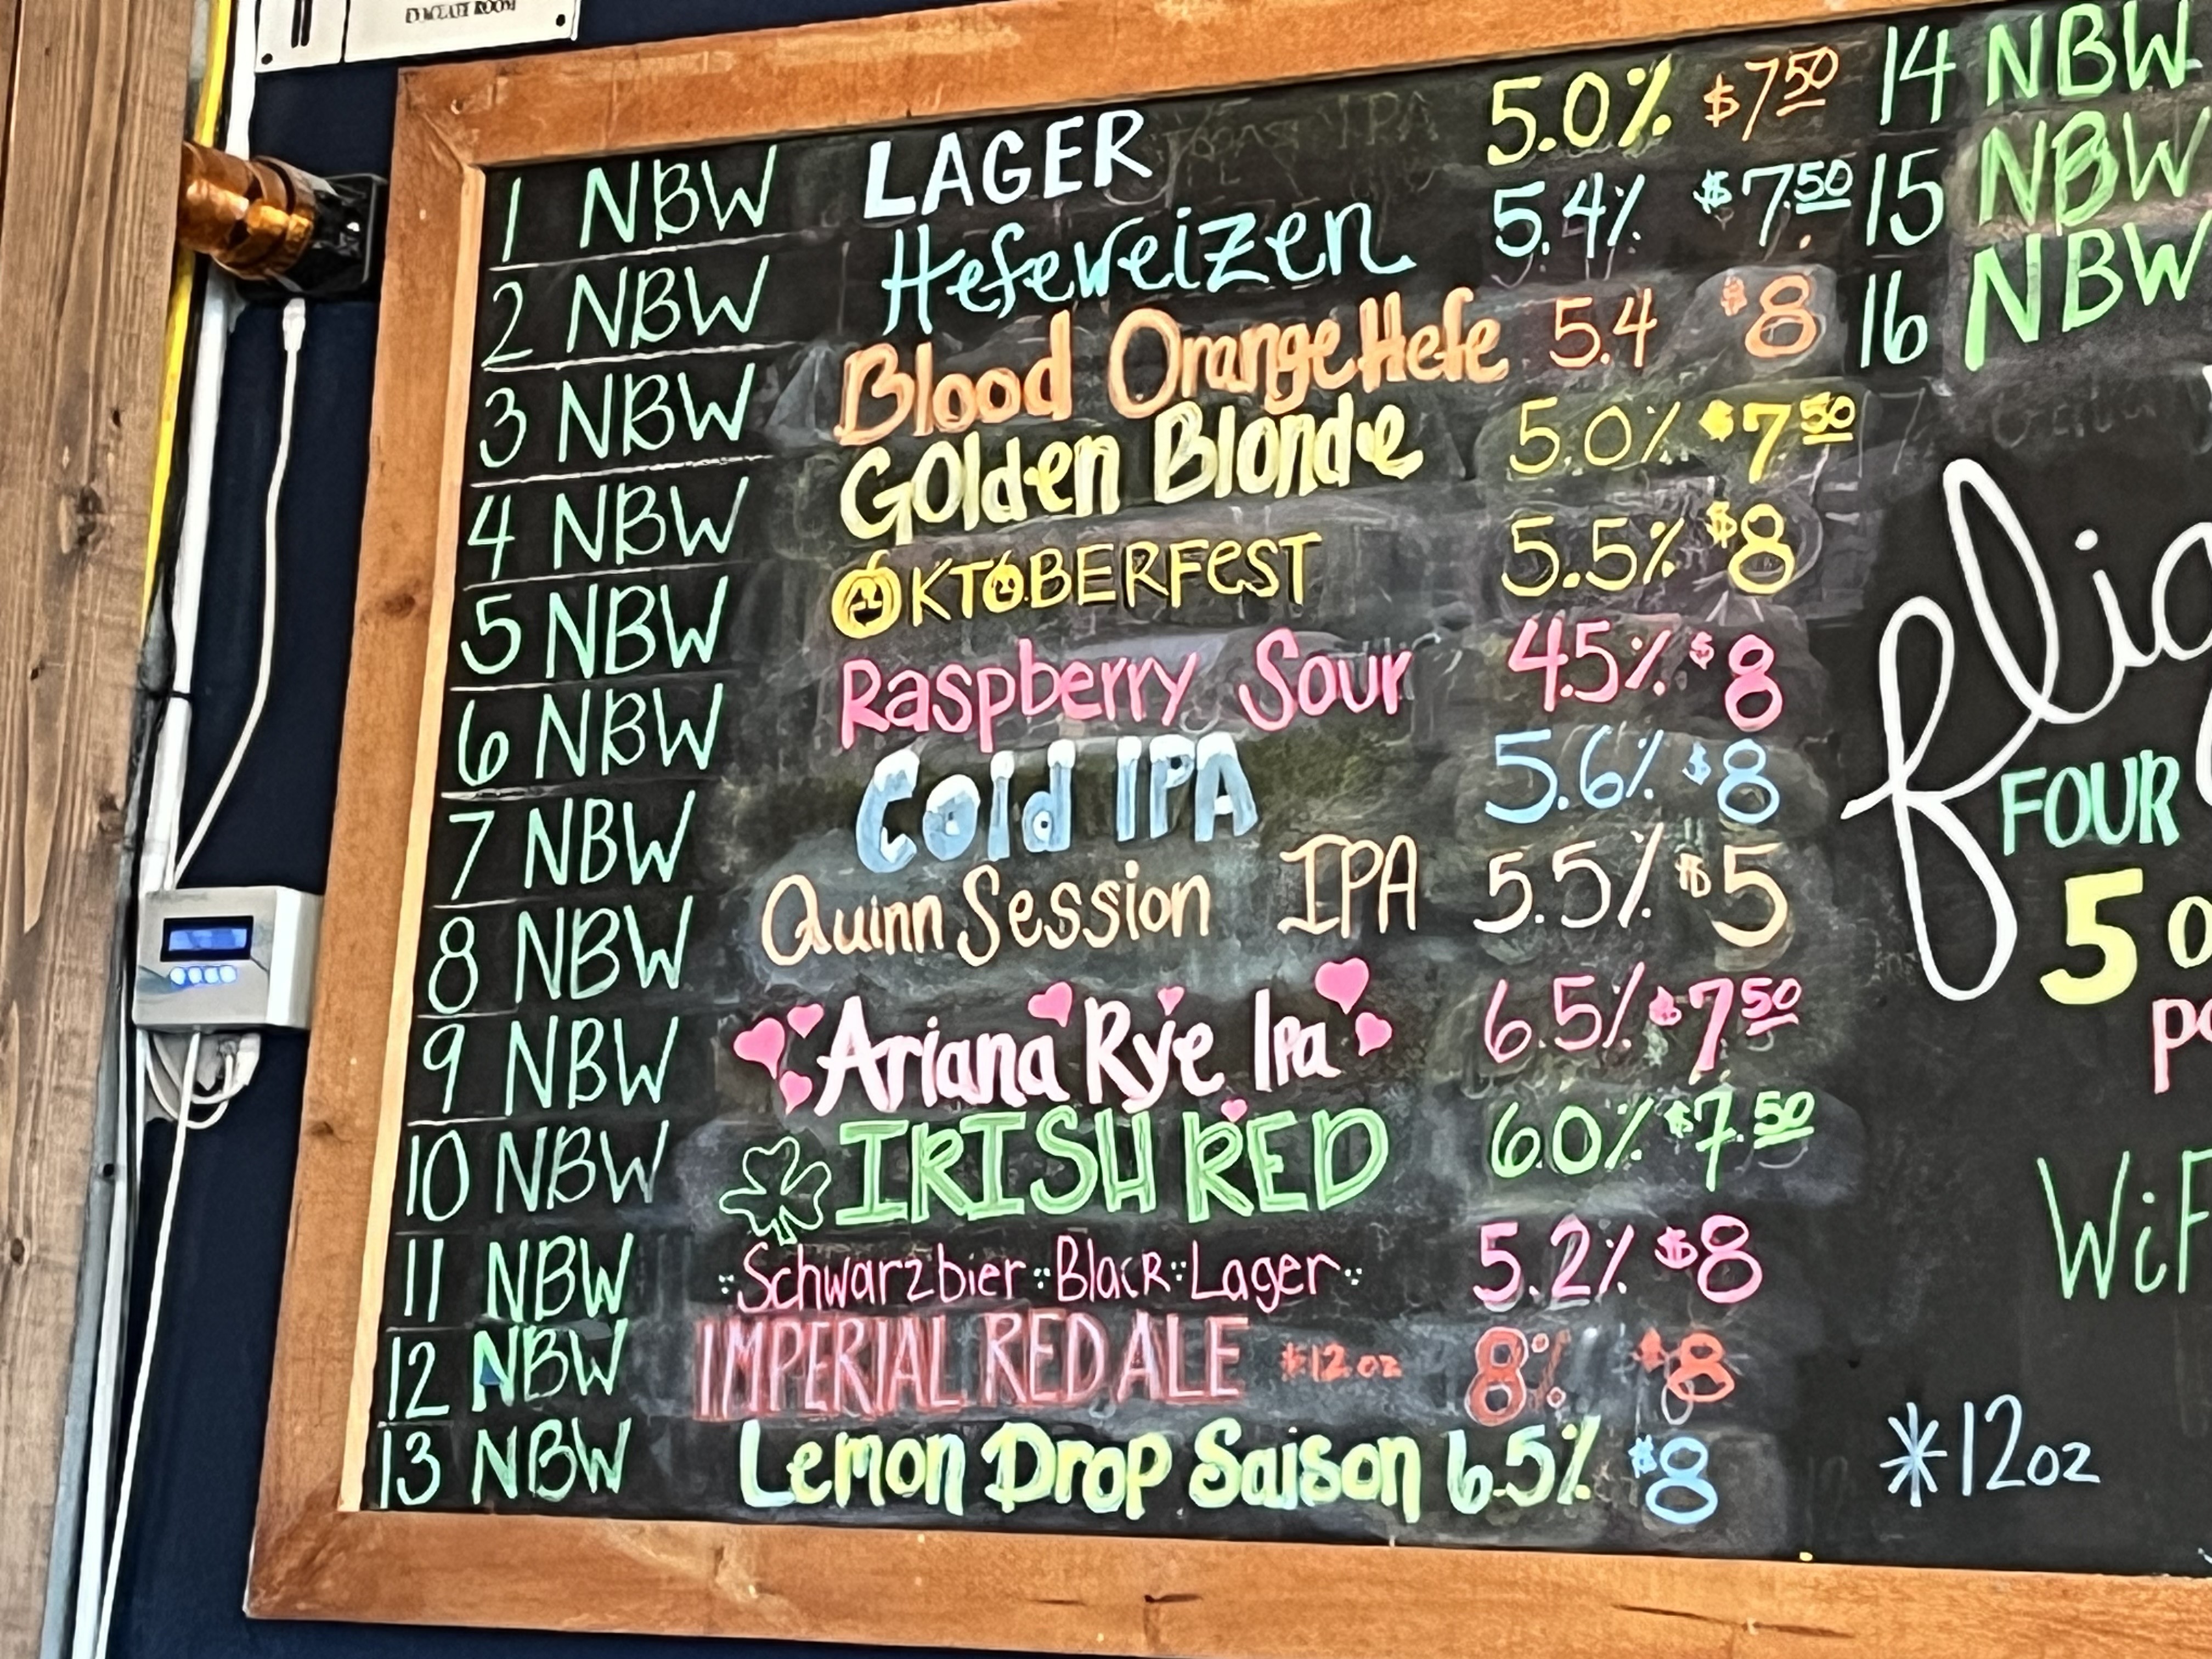 EVACUATE ROOM
1 NBW LAGER 5.0% $7.50
2 NBW Hefeweizen 5.4% $7.50
3 NBW Blood Orange Hefe 5.4 $8
4 NBW Golden Blonde 5.0% $7.50
5 NBW OKTOBERFEST 5.5% $8
6 NBW Raspberry Sour 4.5% $8
7 NBW Cold IPA 5.6% $8
8 NBW Quinn Session IPA 5.5% $5
9 NBW Ariana Rye Ipa 6.5% $7.50
10 NBW IRISH RED 6.0% $7.50
11 NBW Schwarzbier Black Lager 5.2% $8
12 NBW IMPERIAL RED ALE *12oz 8% $8
13 NBW Lemon Drop Saison 6.5% $8
14 NBW
15 NBW
16 NBW
FOUR
5
WiF
*12oz